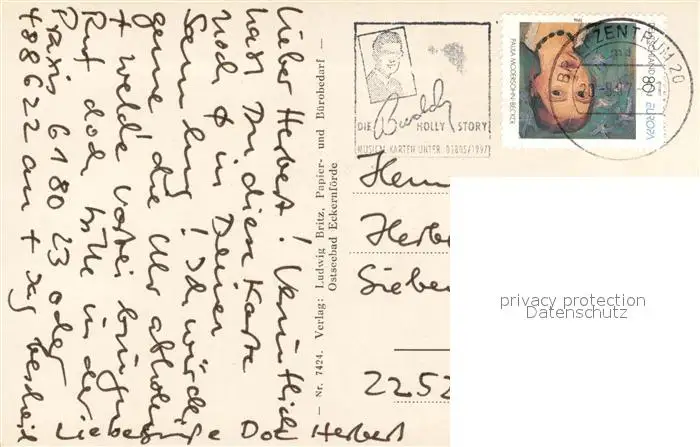 Lieber Herbert! Vermutlich
hast Du diese Karte
noch in Deiner
Sammlung! Ich würde
gerne die Uhr abholen
+ welche vorbei bringen
Ruf doch bitte in der
Praxis 6180 23 oder
488622 an + sag bescheid
Liebe Grüße Dot Herbert
— Nr. 7424. Verlag: Ludwig Britz, Papier- und Bürobedarf —
Ostseebad Eckernförde
DIE Buddy HOLLY STORY
MUSICAL KARTEN UNTER
PAULA MODERSOHN-BECKER
80
EUROPA
ZENTRUM 20
Herrn
Herbe
Siebe
2252
privacy protection
Datenschutz